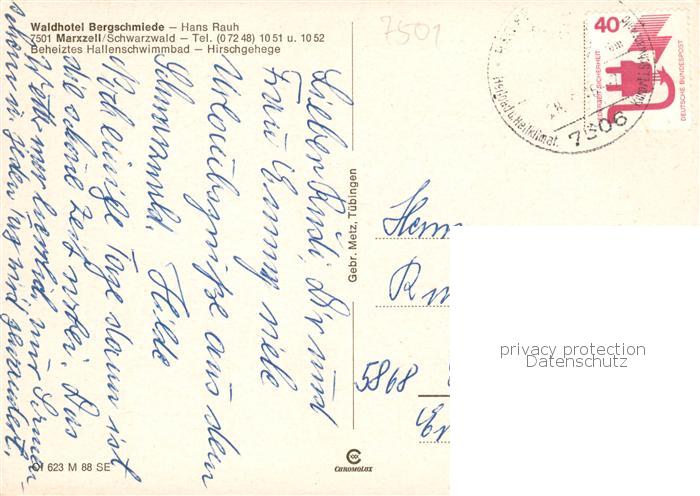 Waldhotel Bergschmiede – Hans Rauh
7501 Marxzell/Schwarzwald – Tel. (0 72 48) 10 51 u. 10 52
Beheiztes Hallenschwimmbad – Hirschgehege
7501
40
DEUTSCHE BUNDESPOST
7506
Lieber Rudi, Dir und
Frau Emmy viele
Urlaubsgrüße aus dem
Schwarzwald. Hilde
Noch einige Tage dann ist
die schöne Zeit vorbei. Das
Wetter war herrlich, nur
schön jeden Tag sind gewandert.
Gebr. Metz, Tübingen
Herrn
5868
CHROMOLUX
OI 623 M 88 SE
privacy protection
Datenschutz